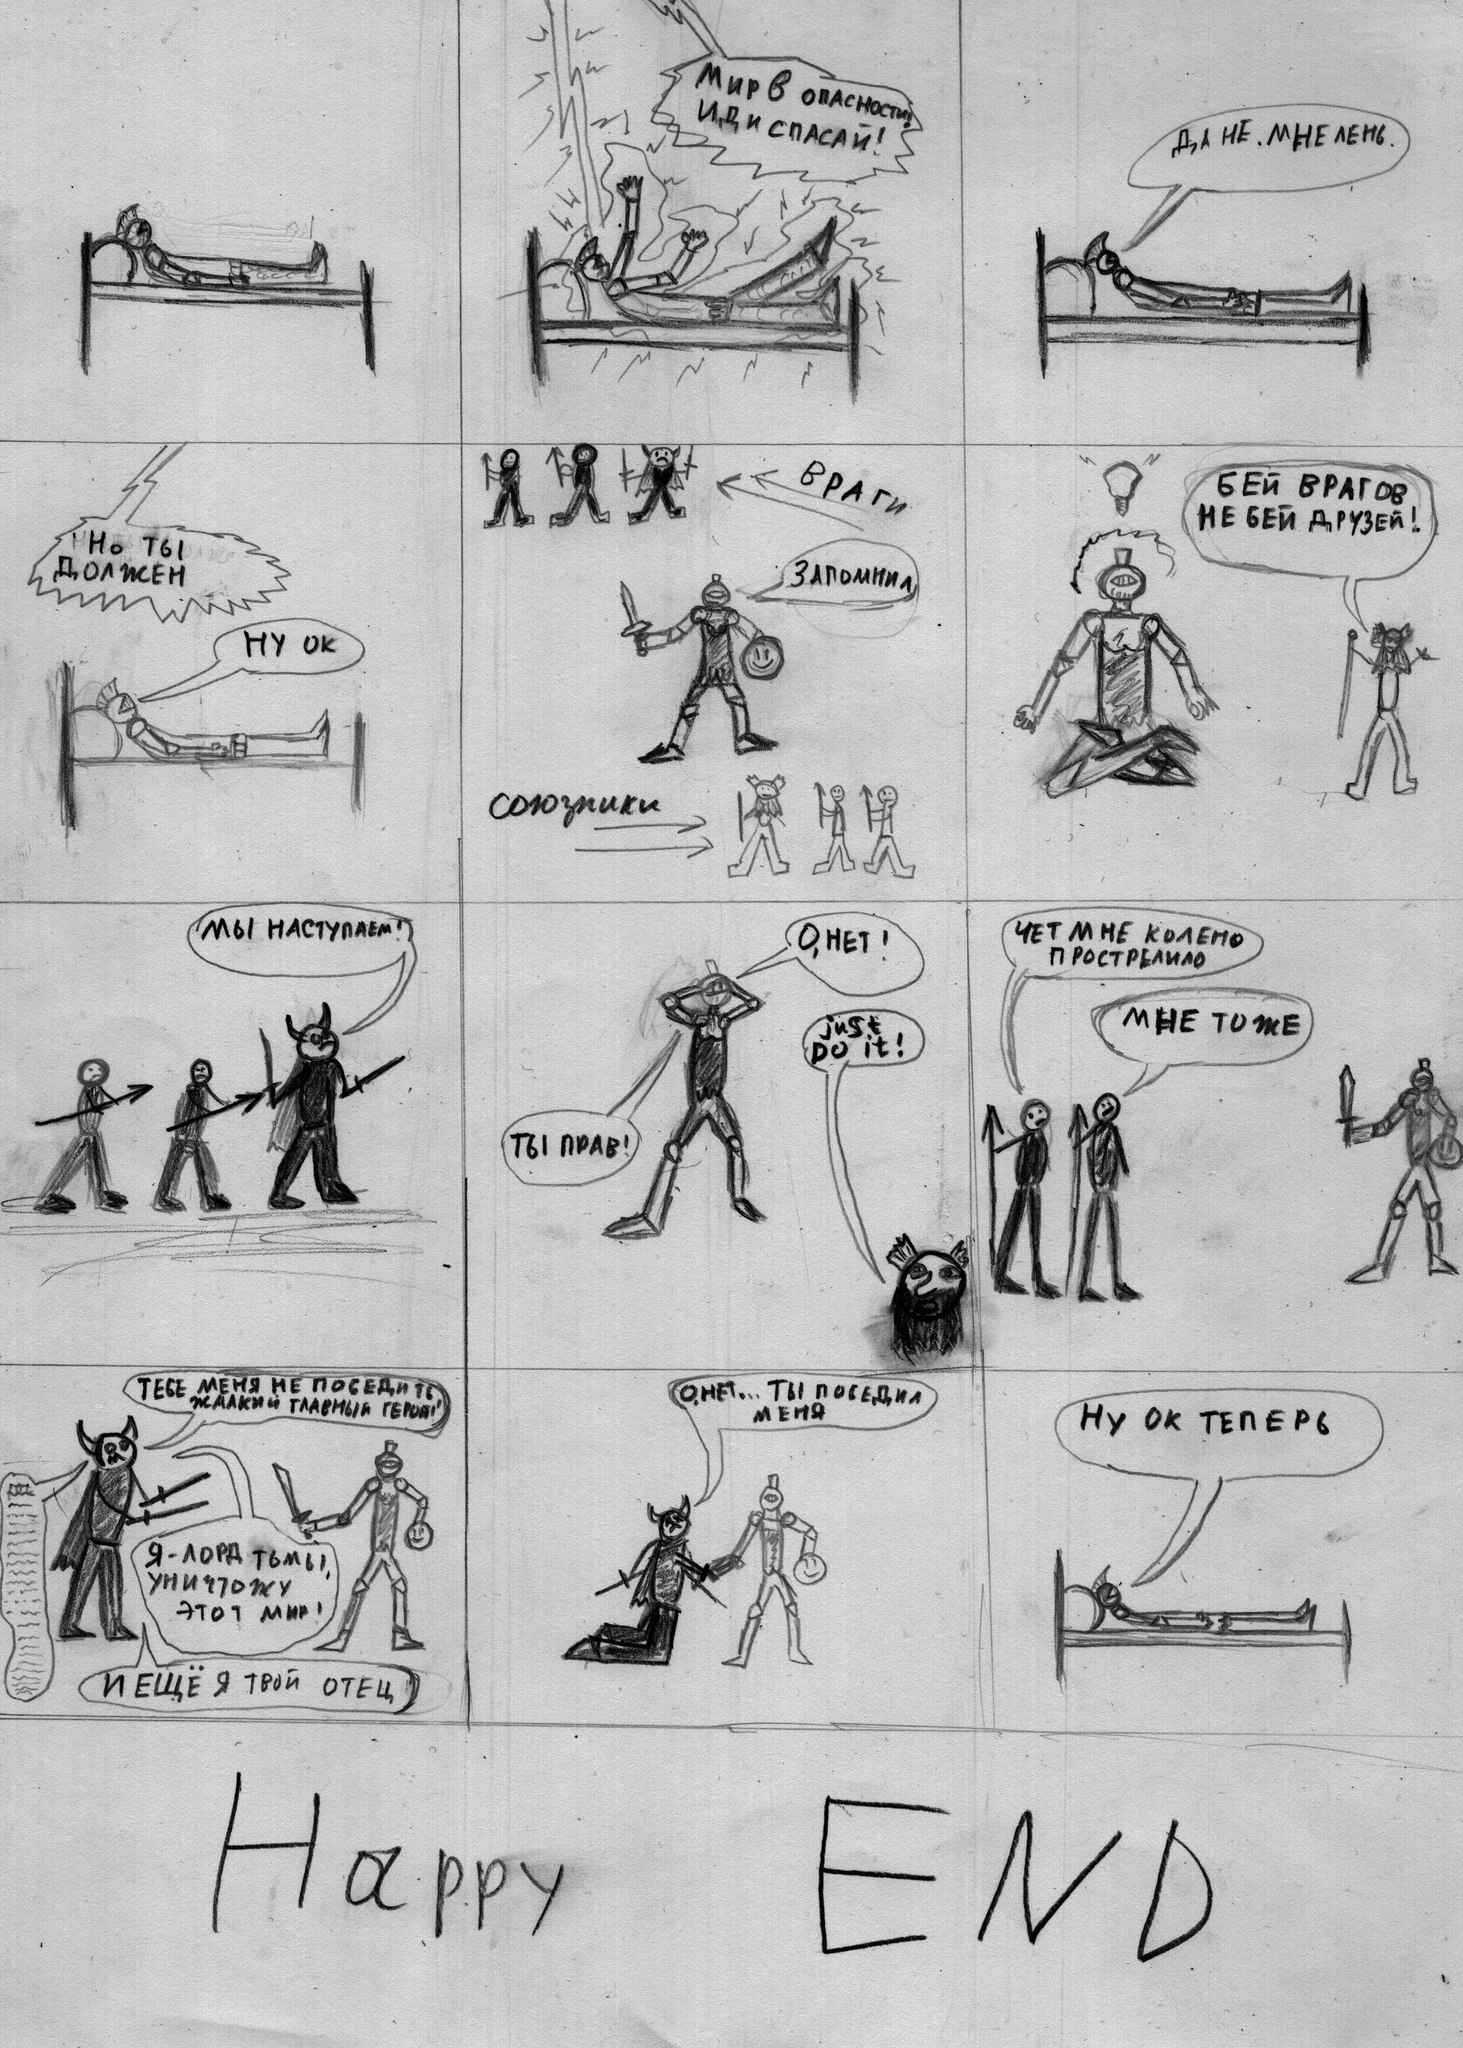 Мир в опасности!
Иди спасай!
Да не. Мне лень.
Но ты
должен
Ну ок
Враги
Запомнил
Союзники
Бей врагов
не бей друзей!
Мы наступаем!
О, нет!
just
Do it!
Ты прав!
Чет мне колено
прострелило
Мне тоже
Тебе меня не победить,
жалкий главный герой!
Я - лорд тьмы,
уничтожу
этот мир!
И ещё я твой отец
О, нет... Ты победил
меня
Ну ок теперь
Happy END